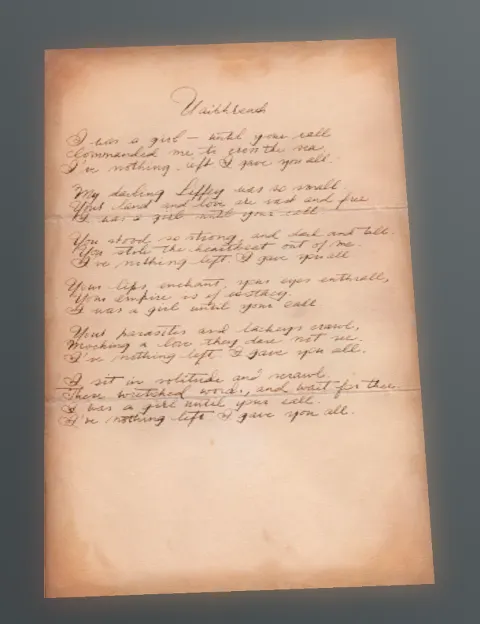 Uaibhreach
I was a girl — until your call
Commanded me to cross the sea.
I've nothing left I gave you all.
My darling Liffey was so small.
Your land and love are vast and free
I was a girl until your call
You stood so strong and dark and tall.
You stole the heartbeat out of me.
I've nothing left I gave you all
Your lips enchant, your eyes enthrall,
Your empire is of ecstacy.
I was a girl until your call
Your parasites and lackeys crawl,
Mocking a love they dare not see.
I've nothing left I gave you all.
I sit in solitude and scrawl.
These wretched words, and wait for thee.
I was a girl until your call.
I've nothing left I gave you all.